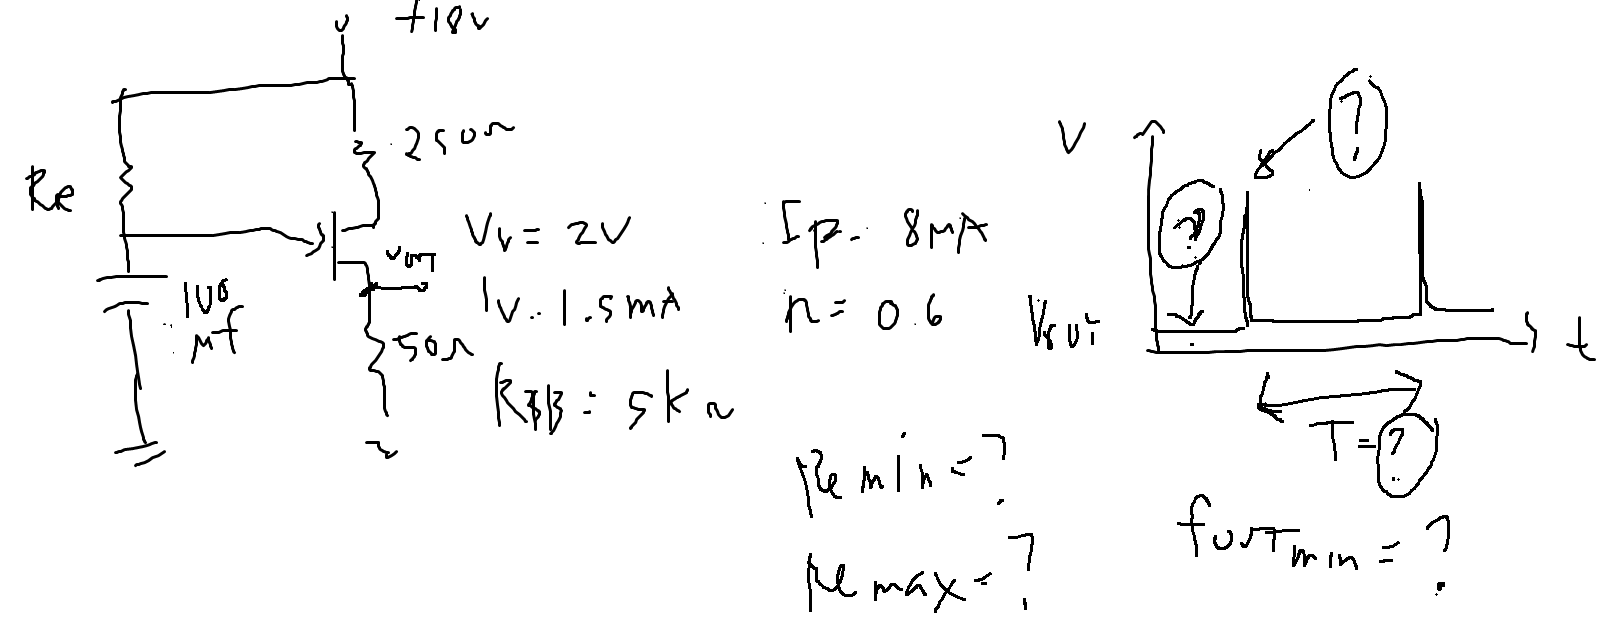 +18v
250Ω
Re
100
μf
VOUT
50Ω
Vv = 2V
Iv = 1.5mA
RBB = 5kΩ
Ip = 8μA
n = 0.6
Re min = ?
Re max = ?
V
?
?
VOUT
t
T = ?
fout min = ?